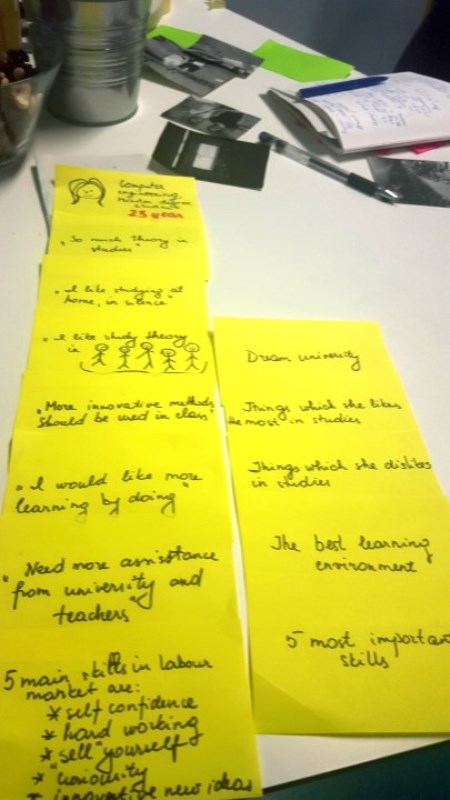 Computer
engineering.
Master degree
student
23 year
"So much theory in
studies"
"I like studying at
home, in silence"
"I like study theory
in
"More innovative methods
should be used in class"
"I would like more
learning by doing"
"Need more assistance
from university and
teachers"
5 main skills in labour
market are:
* self confidence
* hard working
* "sell" yourself
* curiousity
* innovative new ideas
Dream university
Things which she likes
the most in studies
Things which she dislikes
in studies
The best learning
environment
5 most important
skills